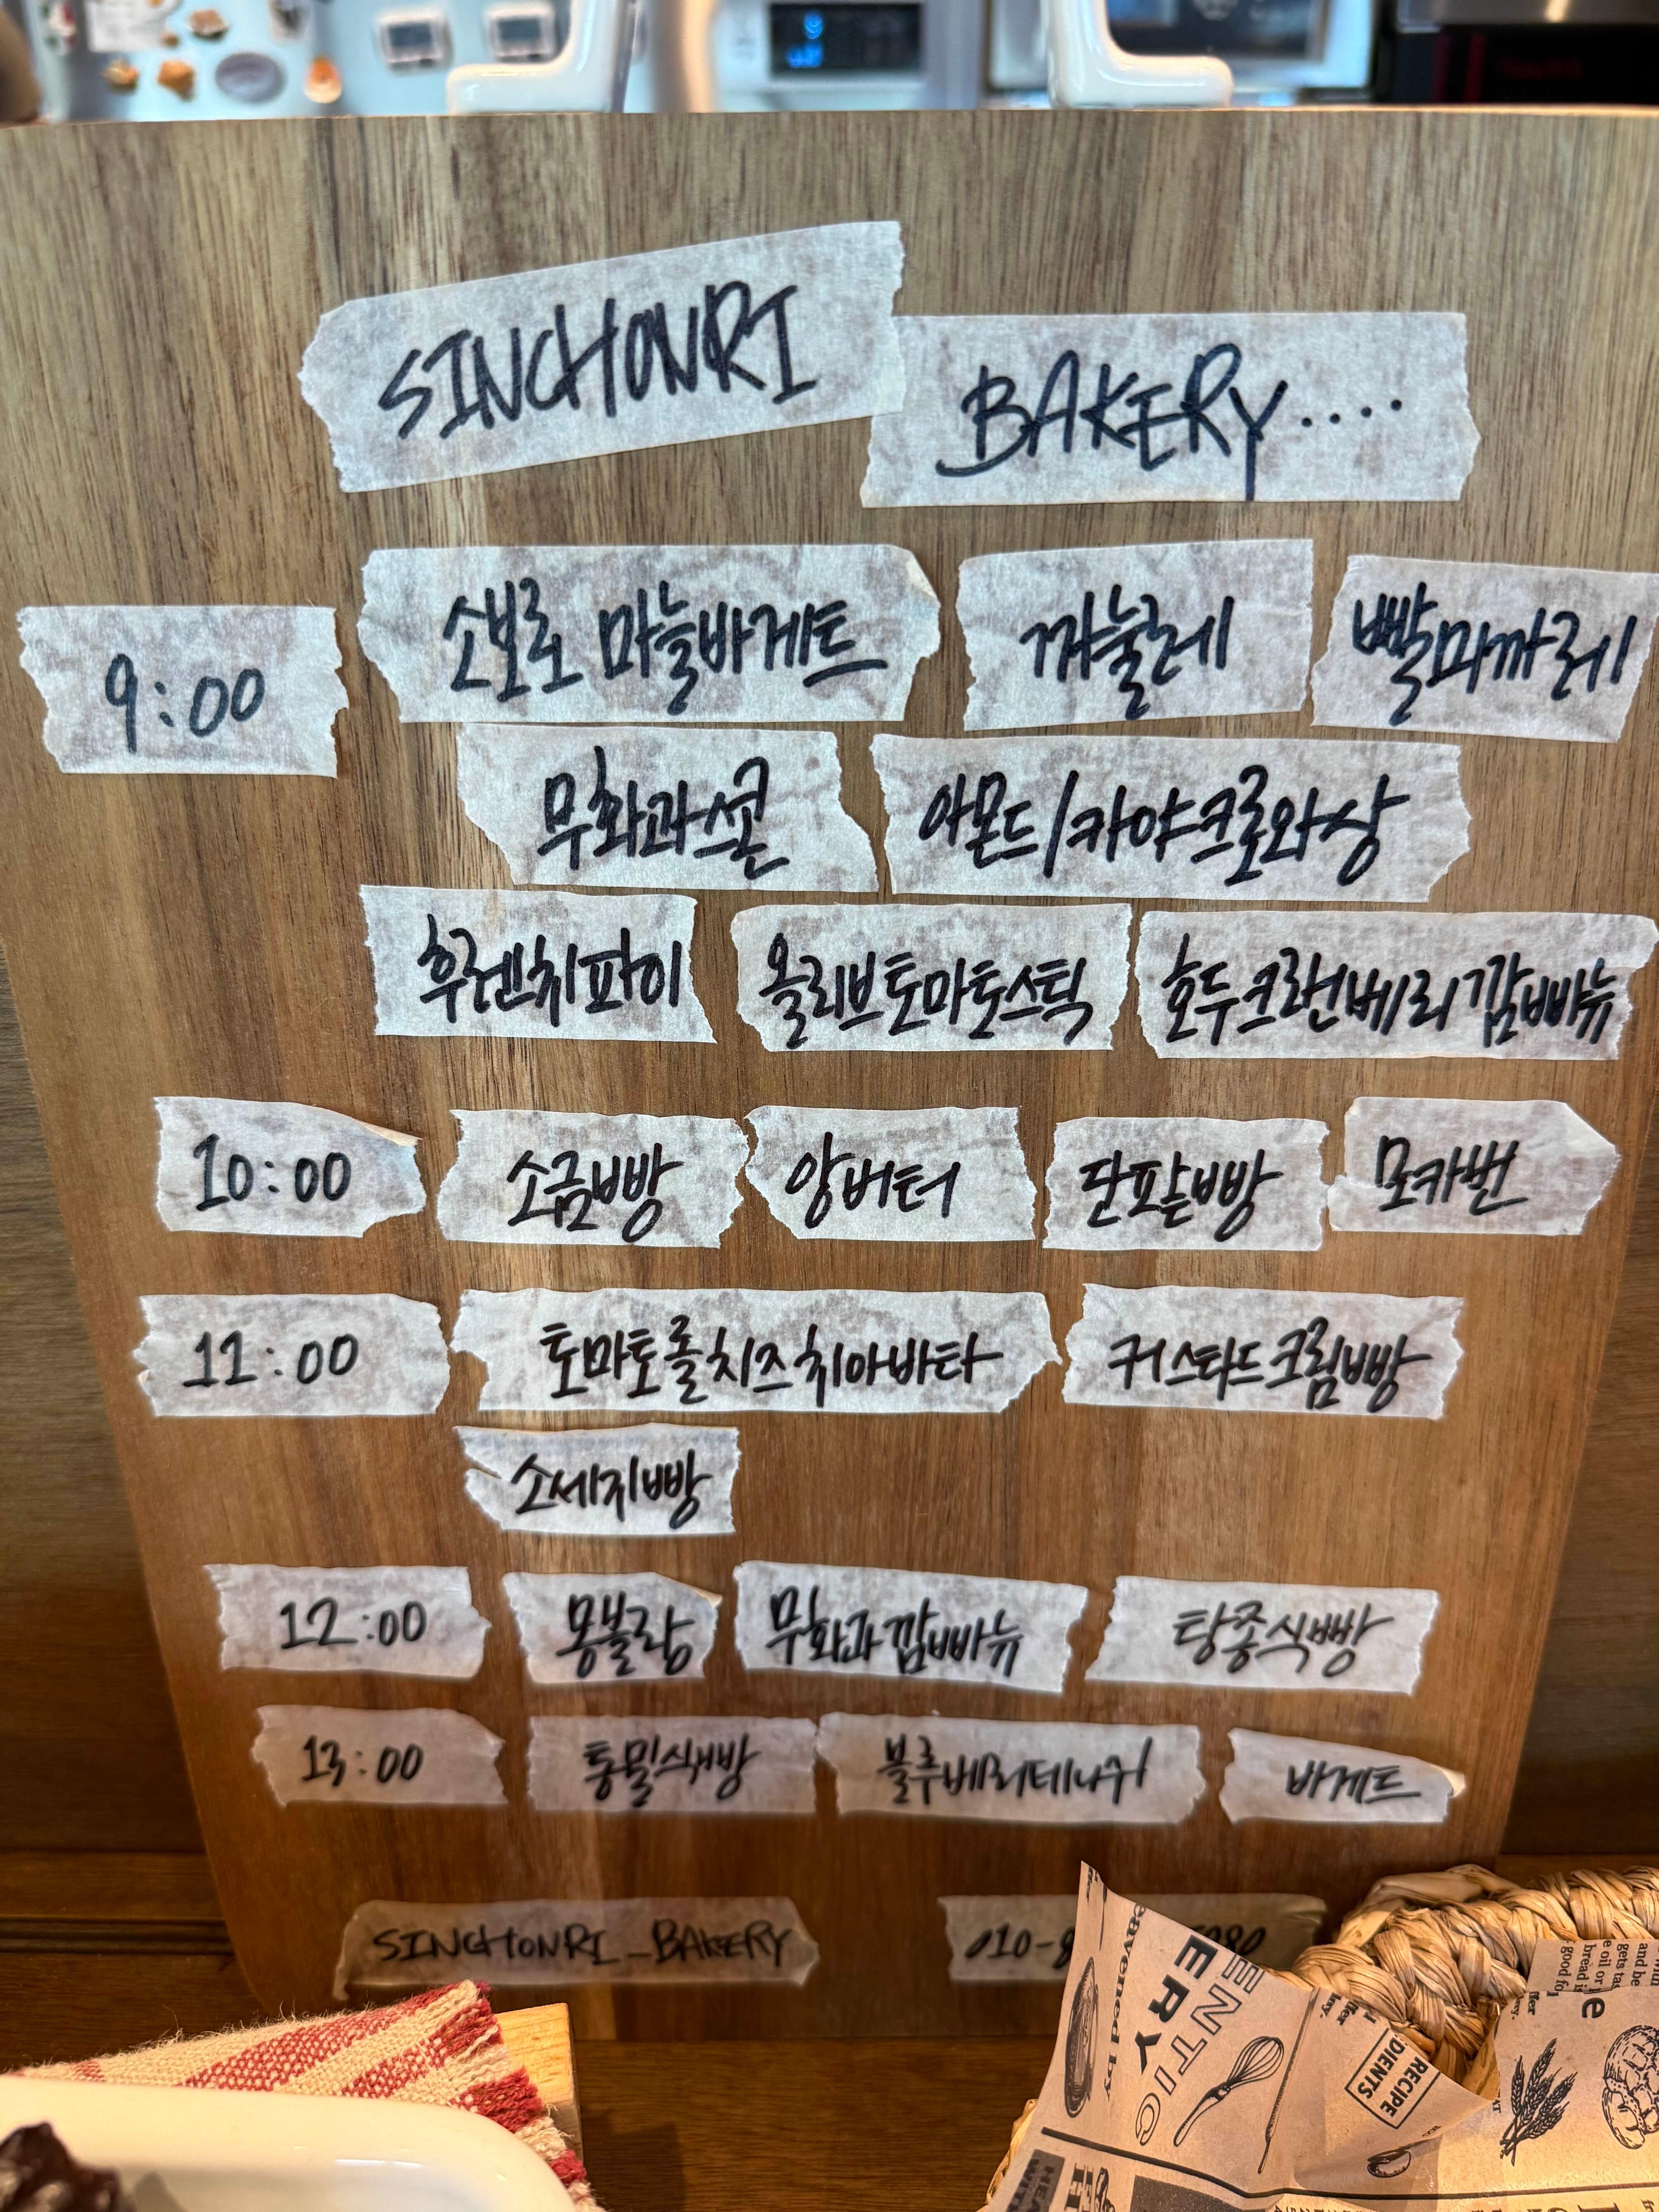 SINCHONRI BAKERY....
9:00 소보로 마늘바게트 까눌레 빨미까레
무화과스콘 아몬드/카야크로와상
후렌치파이 올리브토마토스틱 호두크랜베리깜빠뉴
10:00 소금빵 앙버터 단팥빵 모카번
11:00 토마토롤치즈치아바타 커스타드크림빵
소세지빵
12:00 몽블랑 무화과깜빠뉴 탕종식빵
13:00 통밀식빵 블루베리테나쥬 바게트
SINCHONRI_BAKERY 010-8 080
ENTIC
ERY
eavened by
RECIPE
DIENTS
and be
gets tas
e oil or
bread is
good fo